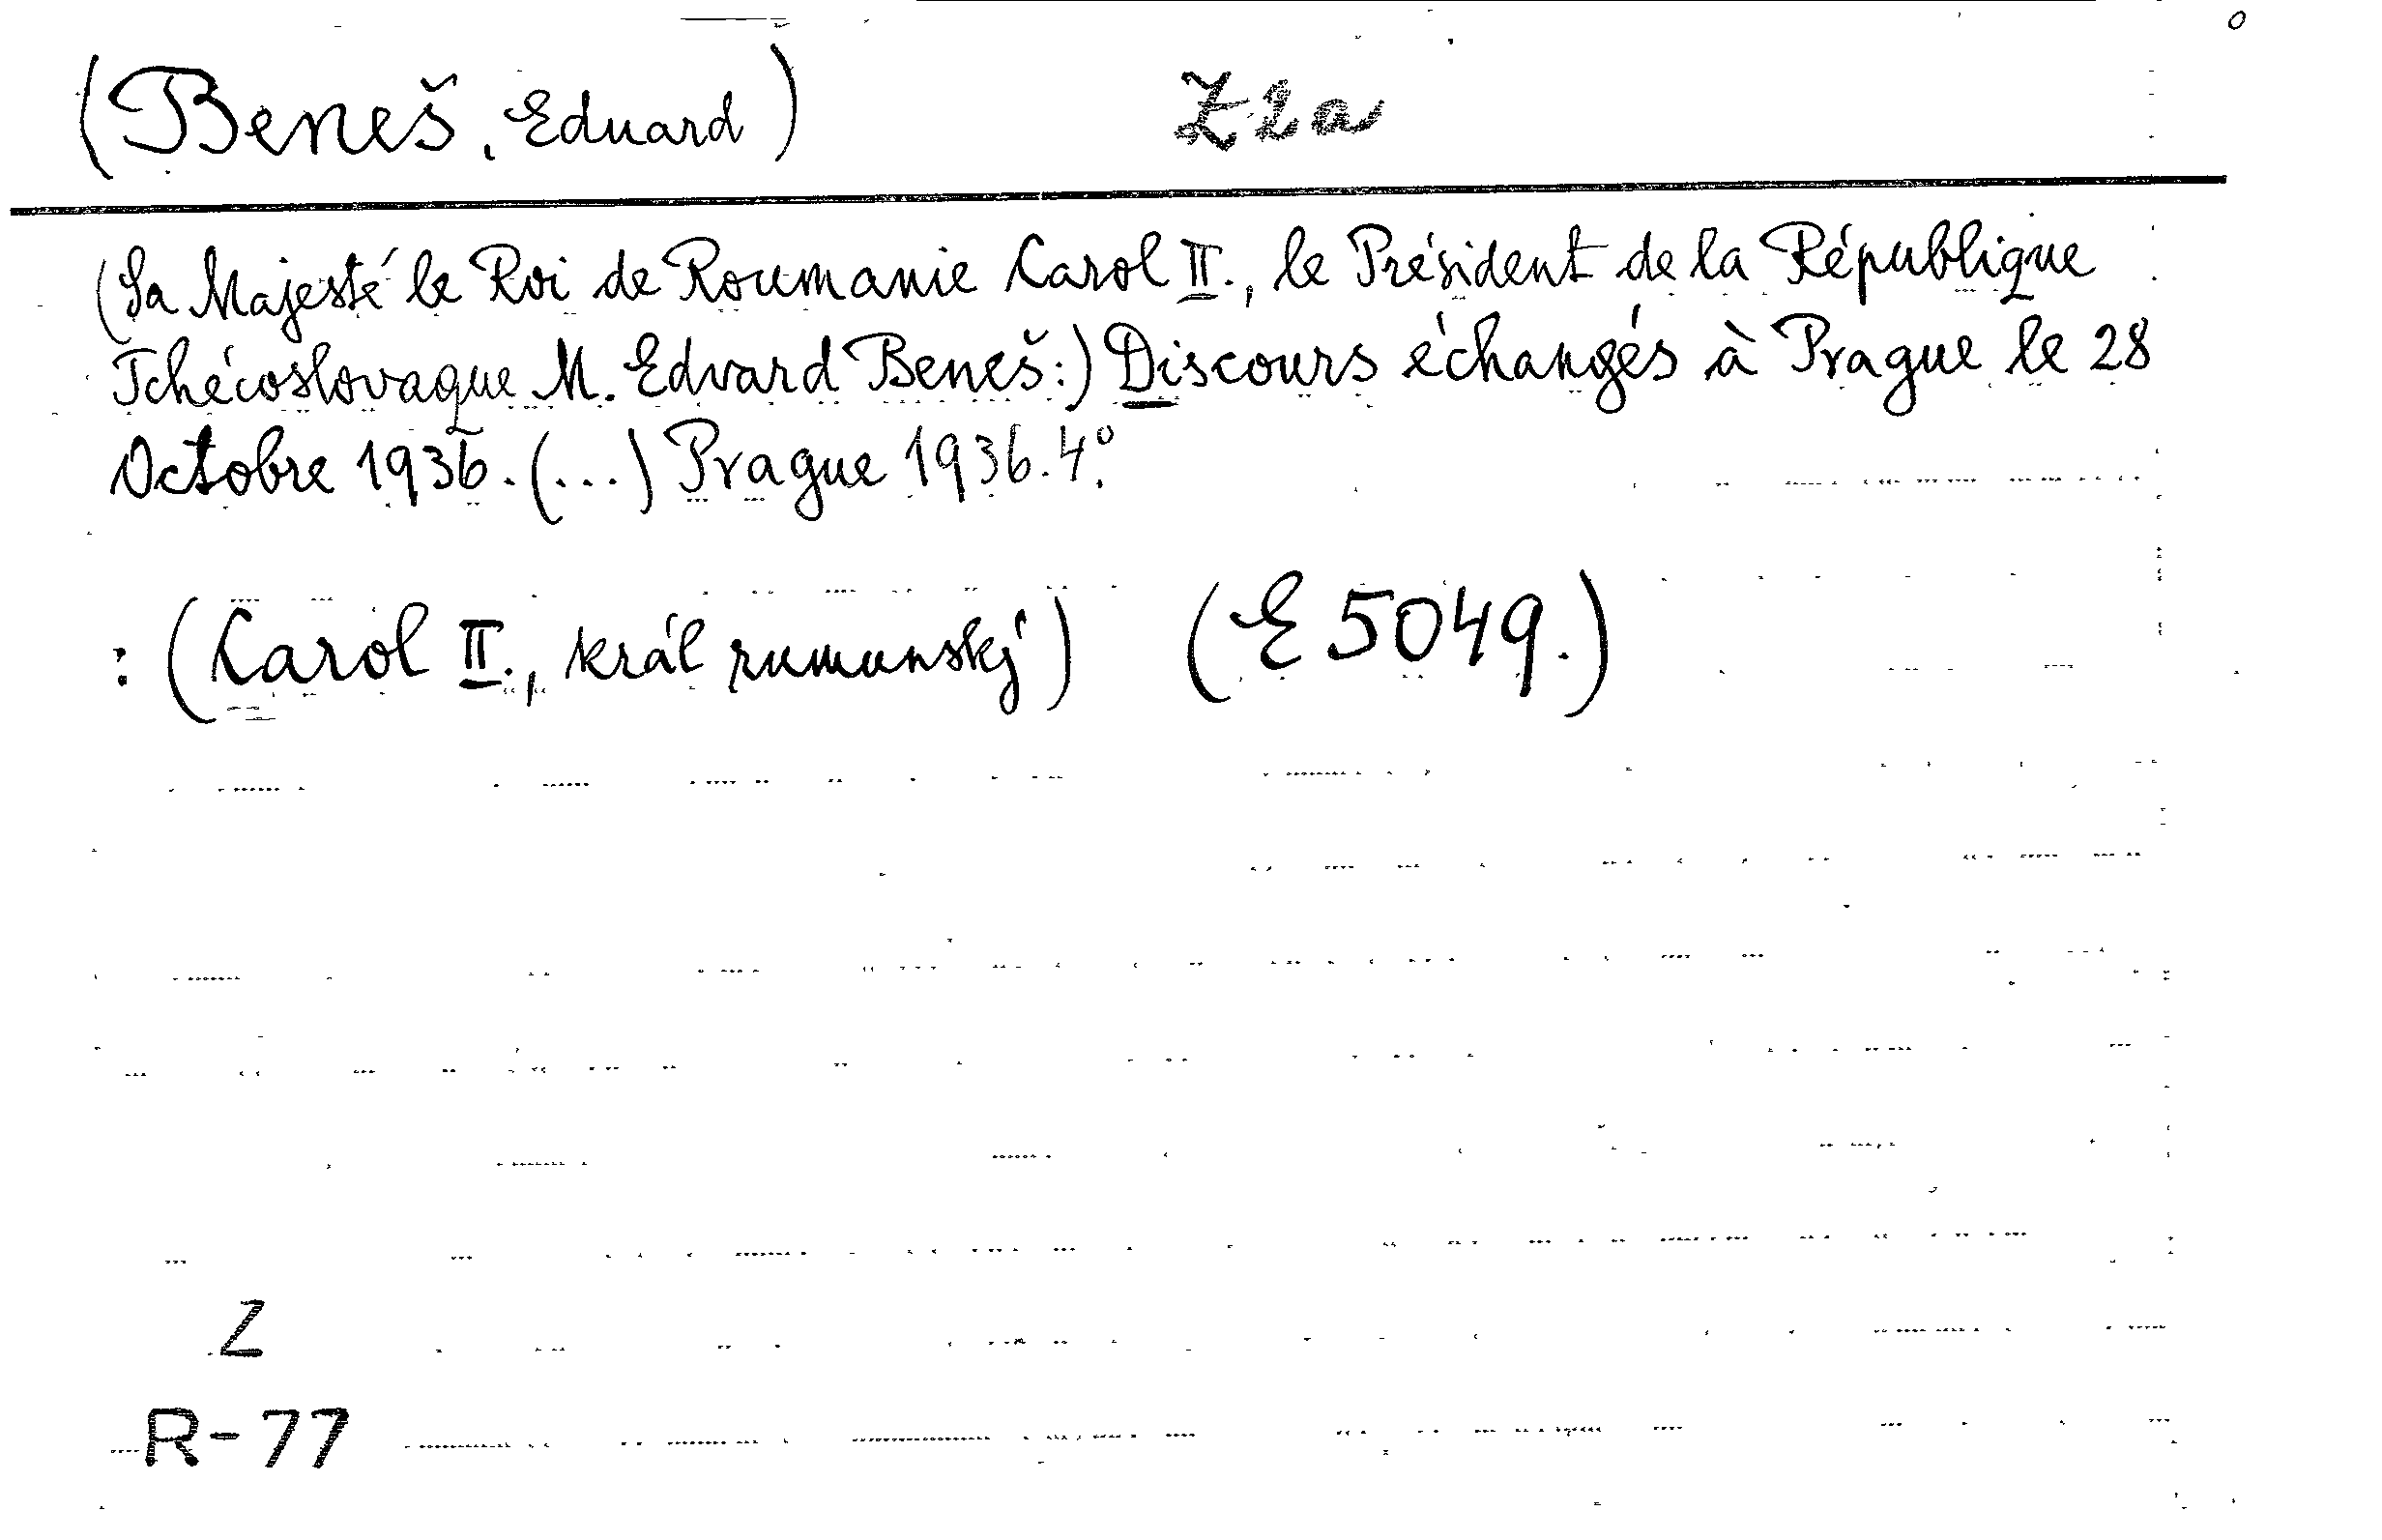 (Beneš, Eduard) Z2a
(Sa Majesté le Roi de Roumanie Carol II., le Président de la République
Tchécoslovaque M. Edvard Beneš:) Discours échangés à Prague le 28
Octobre 1936. (...) Prague 1936. 4°.
: (Carol II., král rumunský) (E 5049.)
Z
R-77